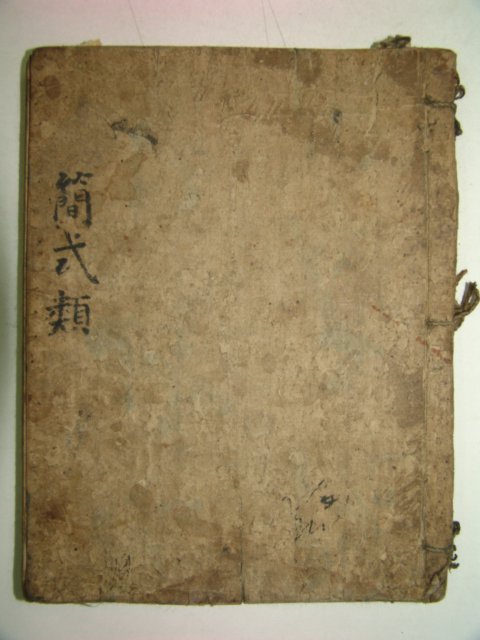 簡式類